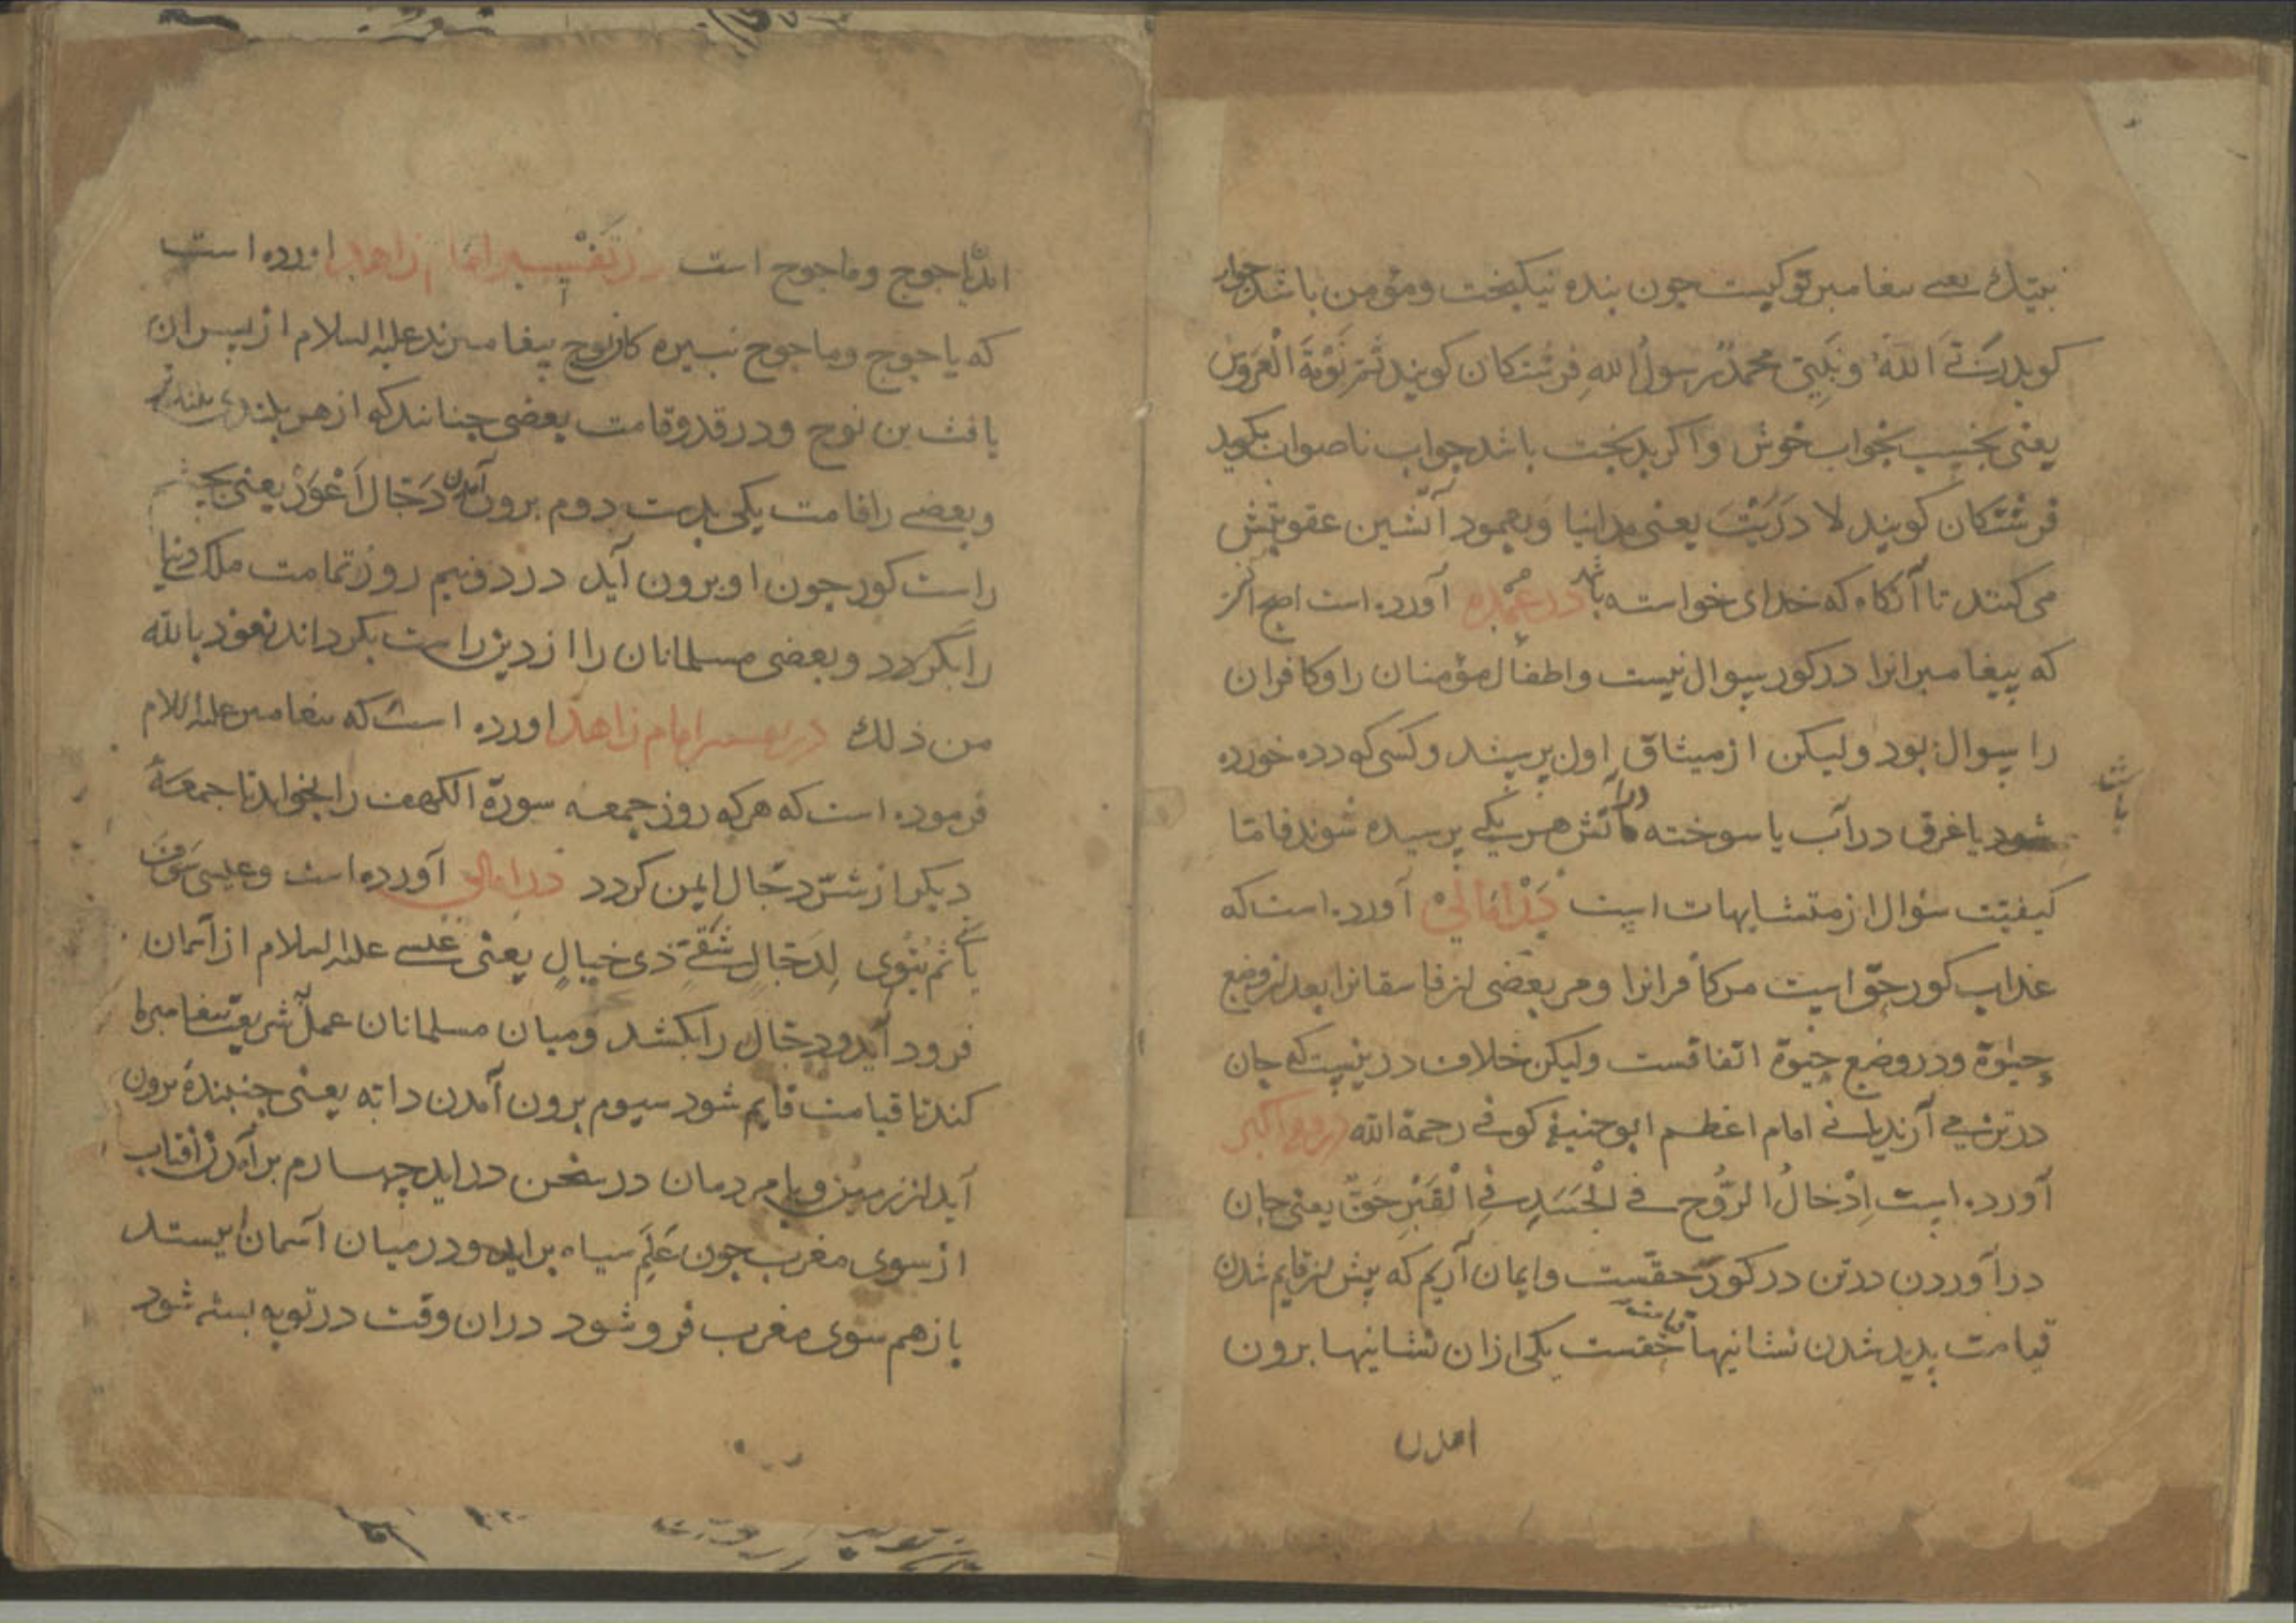 نبیّك یعنی پیغامبر تو کیست چون بنده نیکبخت و مؤمن باشد جواب
کوید رَبِّیَ اللهُ وَ نَبِیّی محمدٌ رسولُ اللهِ فرشتکان کویند نَمْ نَوْمَةَ الْعَروُسِ
یعنی بخسب بخواب خوش و اکر بدبخت باشد جواب ناصواب بکوید
فرشتکان کویند لا دَرَیْتَ یعنی مدانیا و بعمود آتشین عقوبتش
می کنند تا آنکاه که خدای خواسته باشد در عمده آورده است اصح آنست
که پیغامبرانرا در کور سوال نیست و اطفال مؤمنان را و کافران
را سوال بود ولیکن از میثاق اول پرسند و کسی که دده خورده
باشد
شود یا غرق در آب یا سوخته در آتش هر یکی پرسیده شوند فاما
کیفیّت سؤال از متشابهات است در امالی آورده است که
عذاب کور حقّ است مر کافرانرا و مر بعضی از فاسقانرا بعد از وضع
حیٰوة و در وضع حیٰوة اتفاقست ولیکن خلاف در نیست که جان
در تن می آرند یا نی امام اعظم ابو حنیفه کوفی رحمة الله در فقه اکبر
آورده است اِدْخالُ الرُّوح فی الْجَسَدِ فِی الْقَبْرِ حَقٌ یعنی جان
در آوردن در تن در کور حقست و ایمان آریم که پیش از قایم شدن
قیامت پدید شدن نشانیها قیامت حقست یکی ازان نشانیها برون
امدن
امدن یاجوج و ماجوج است در تفسیر امام زاهد اورده است
که یاجوج و ماجوج نبسیره کان نوح پیغامبرند علیه السلام از پسران
یافث بن نوح و در قد و قامت بعضی چنانند که از هر بلندی بلندتر
و بعضی را قامت یکی بدست دوم برون آمدن دَجّال اَعْوَرْ یعنی بچشم
راست کور چون او برون آید در دو نیم روز تمامت ملك دنیا
را بگردد و بعضی مسلمانان را از دین راست بکرداند نعوذ بالله
من ذلك در تفسیر امام زاهد اورده است که پیغامبر علیه السلام
فرموده است که هر که روز جمعه سورة الکهف را بخواند تا جمعهٔ
دیکر از شرّ دجّال ایمن کردد در امالی آورده است و عیسی سَوْفَ
یأتی ثم یتْوی لِدَجّالٍ شَقیٍّ ذی خبالٍ یعنی عیسی علیه السلام از آسمان
فرود آید و دجّال را بکشد و میان مسلمانان عمل شریعت پیغامبر ما
کند تا قیامت قایم شود سیوم برون آمدن دابّه یعنی جنبندهٔ برون
آید از زمین و با مردمان در سخن دراید چهارم برآمدن آفتاب
از سوی مغرب چون عَلَمِ سیاه براید و در میان آسمان ایستد
باز هم سوی مغرب فرو شود دران وقت در توبه بسته شود